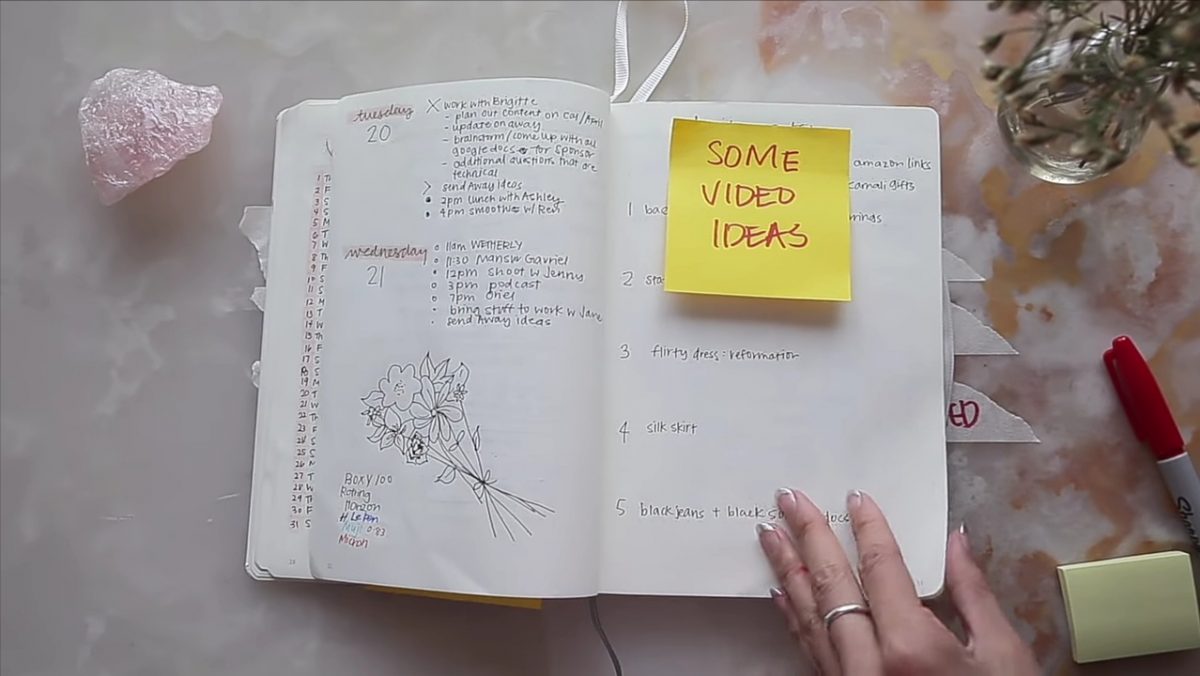 tuesday
20
X work with Brigitte
- plan out content on cal/April
- update on away
- brainstorm/come up with all
google docs for sponsor
- additional questions that are
technical
> send Away ideas
• 2pm lunch with Ashley
• 4pm smoothie w/ Ren
wednesday
21
o 11am WETHERLY
o 11:30 Mansur Gavriel
o 12pm shoot w Jenny
o 3pm podcast
o 7pm
• bring stuff to work w Jane
• send Away ideas
1 Th
2 F
3 S
4 S
5 M
6 T
7 W
8 Th
9 F
10 S
11 S
12 M
13 T
14 W
15 Th
16 F
17 S
18 S
19 M
20 T
21 W
22 Th
23 F
24 S
25 S
26 M
27 T
28 W
29 Th
30 F
31 S
Boxy 100
Rotring
Monzon
Le Pen
Muji 0.83
Micron
SOME
VIDEO
IDEAS
amazon links
gifts
1
2
3 flirty dress: reformation
4 silk skirt
5 black jeans + black
ED